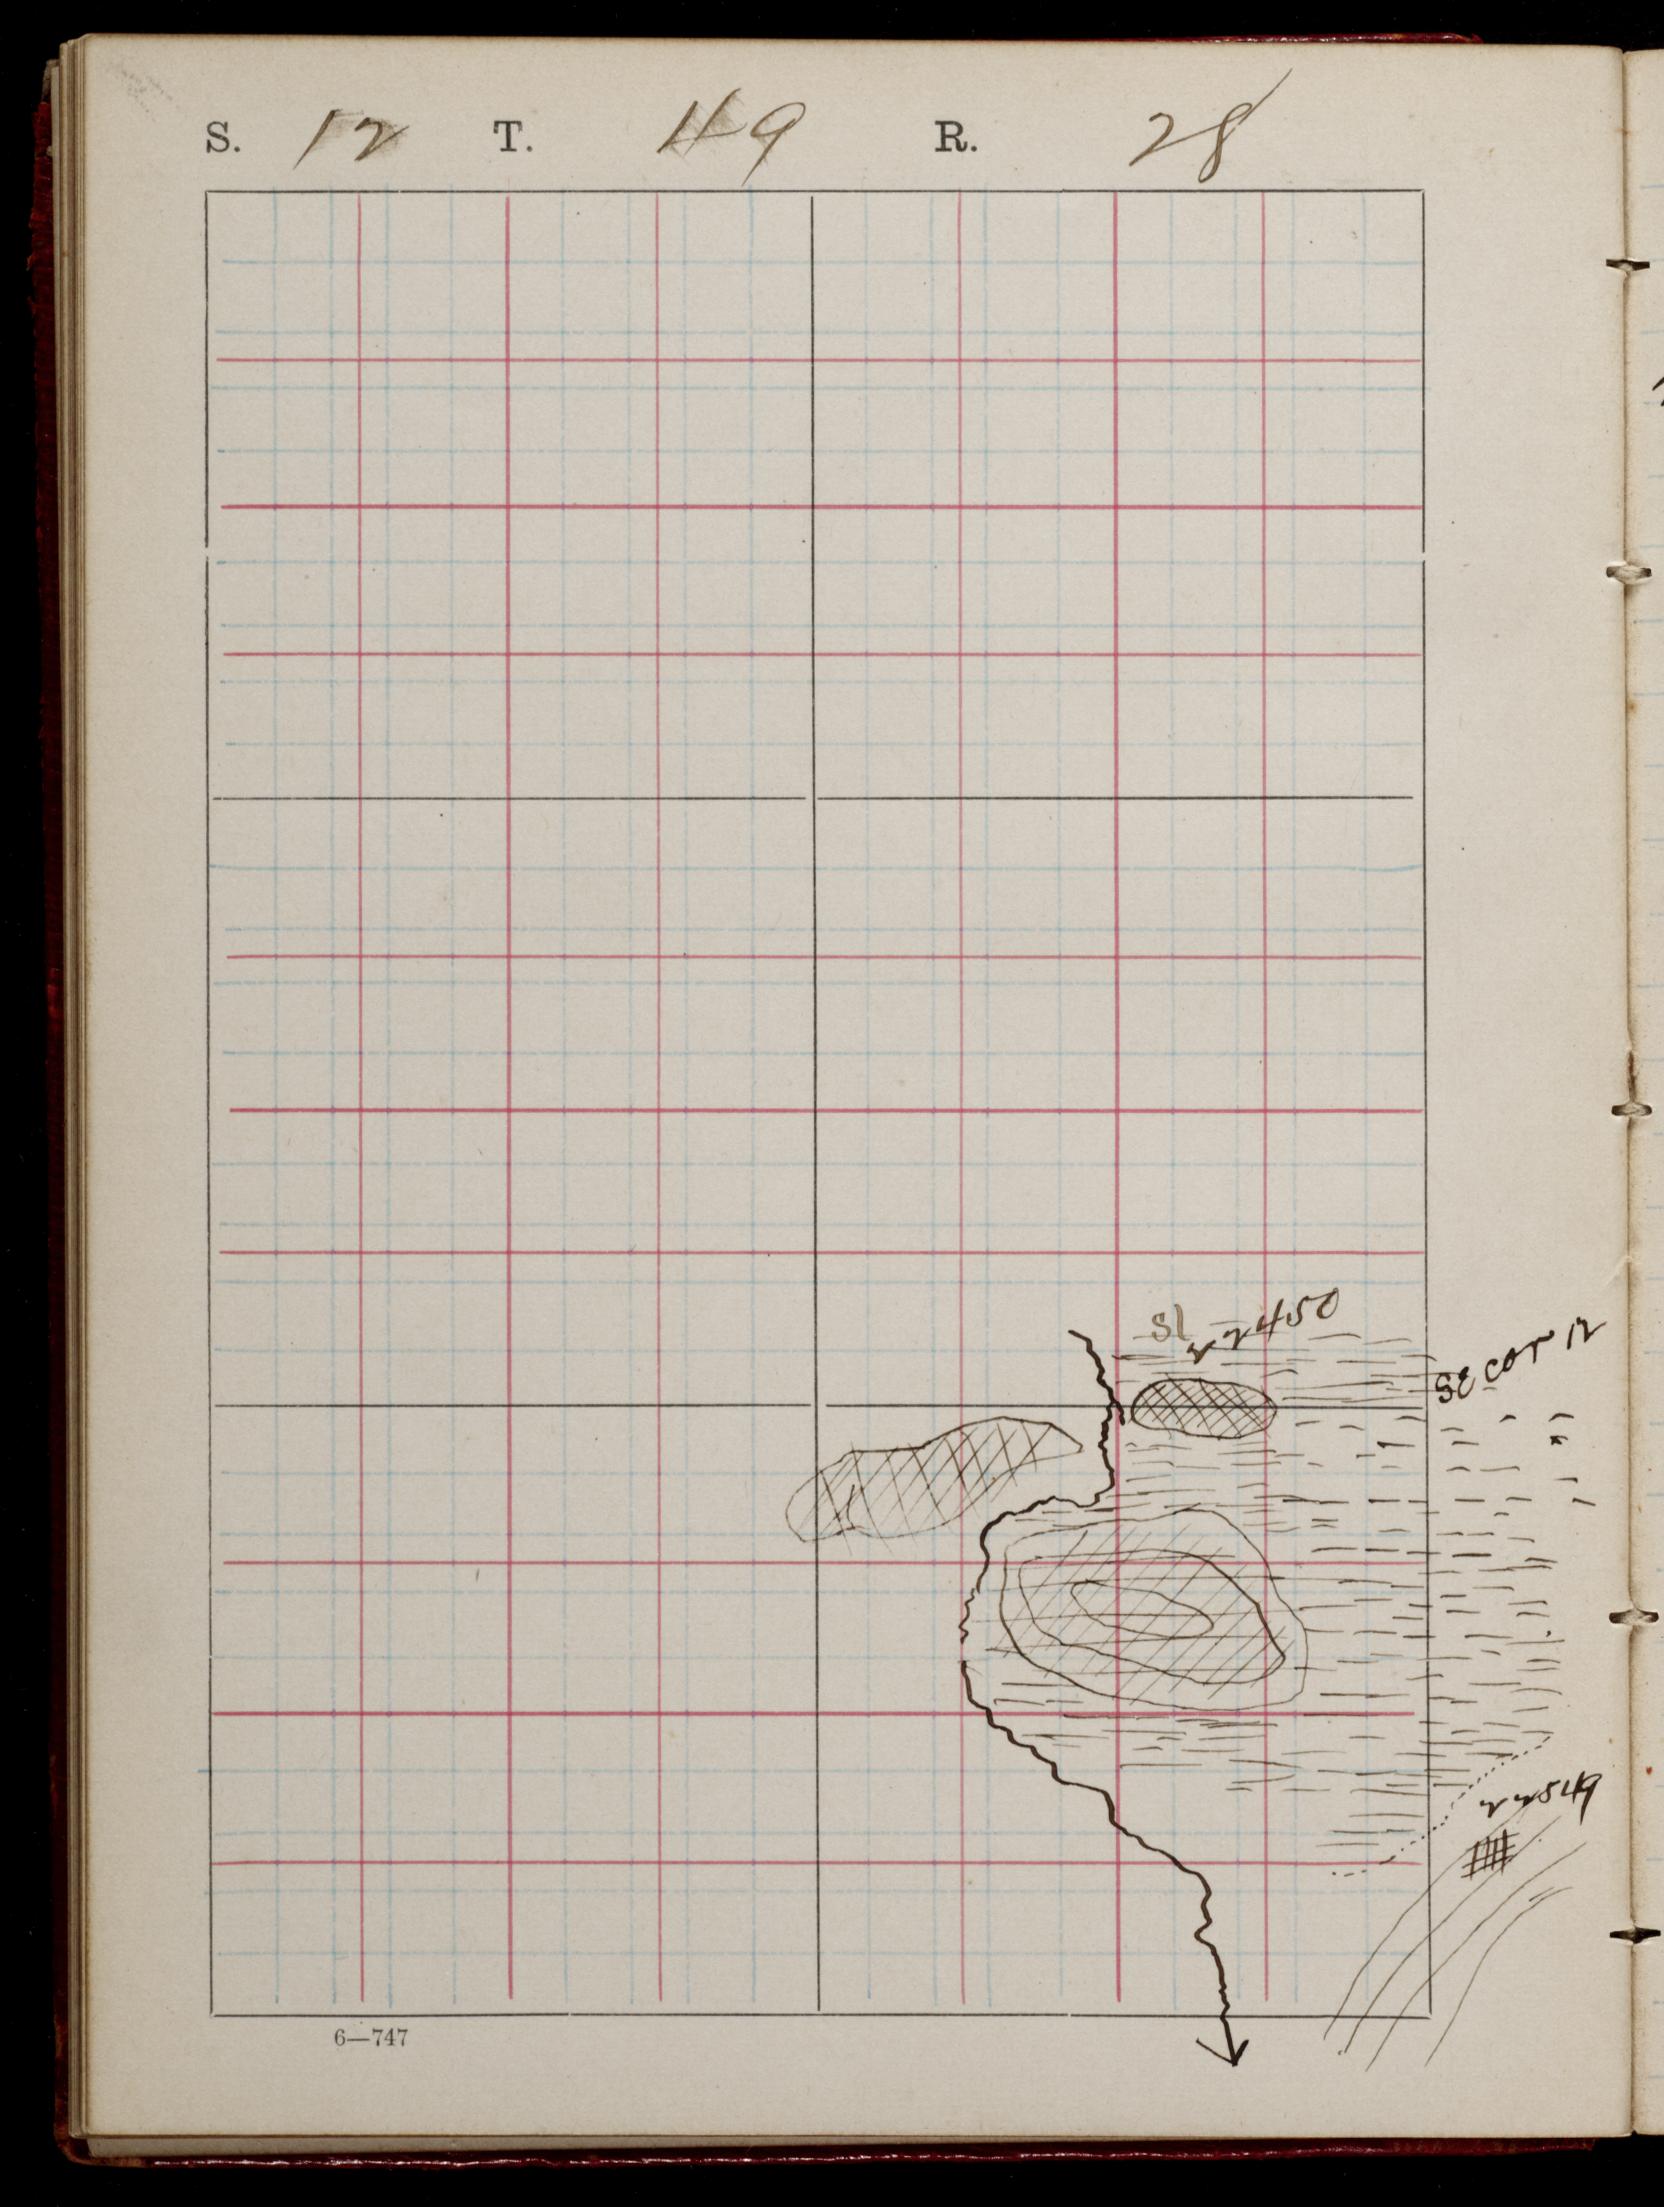 S. 12 T. 49 R. 28
Sl 22450
SE cor 12
22549
6—747